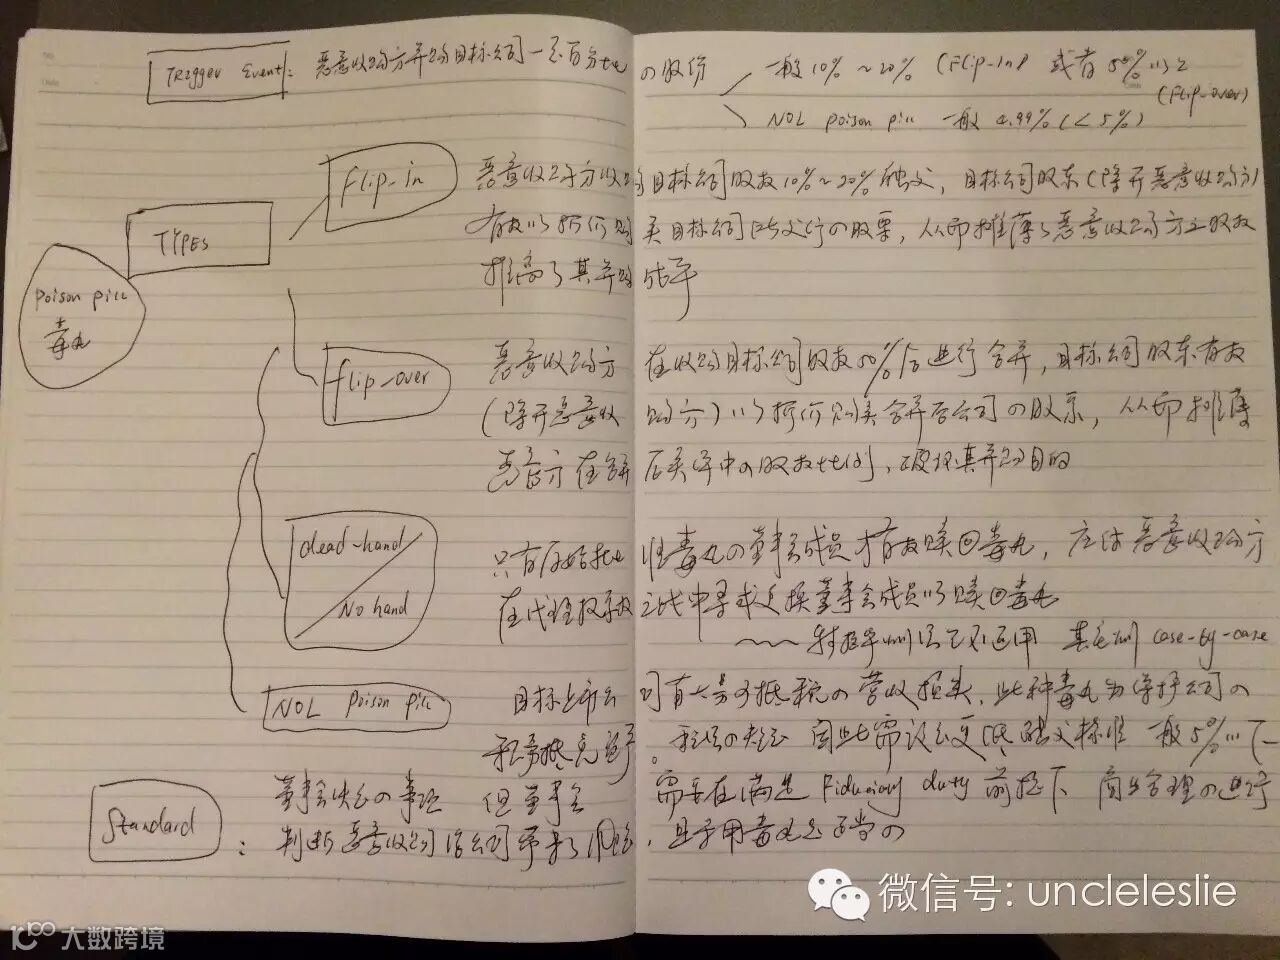 Trigger Event: 恶意收购方并购目标公司一定百分比的股份
一般10%~20% (Flip-in) 或者50%以上
(Flip-over)
NOL poison pill 一般4.99%(<5%)
Flip-in
恶意收购方收购目标公司股权10%~20%触发, 目标公司股东(除开恶意收购方)
有权以折价购买目标公司所发行的股票, 从而摊薄了恶意收购方之股权
推高了其并购成本
TYPES
poison pill
毒丸
flip-over
恶意收购方在收购目标公司股权50%后进行合并, 目标公司股东有权
(除开恶意收购方)以折价购买合并后公司的股票, 从而摊薄
恶意方在合并后实体中的股权比例, 破坏其并购目的
dead-hand
No hand
只有原始批准毒丸的董事会成员才有权赎回毒丸, 应付恶意收购方
在代理权争夺之战中寻求更换董事会成员以赎回毒丸
~~~ 特拉华州法已不适用 其它州 case-by-case
NOL poison pill
目标上市公司有大量可抵税的营收损失, 此种毒丸为保护公司的
税务抵免 因此需设立更低触发标准 一般5%以下
Standard:
董事会决定的事项 但董事会需要在满足Fiduciary duty前提下 商业合理的进行
判断恶意收购给公司带来了风险, 且采用毒丸是适当的
微信号: uncleleslie
大数跨境